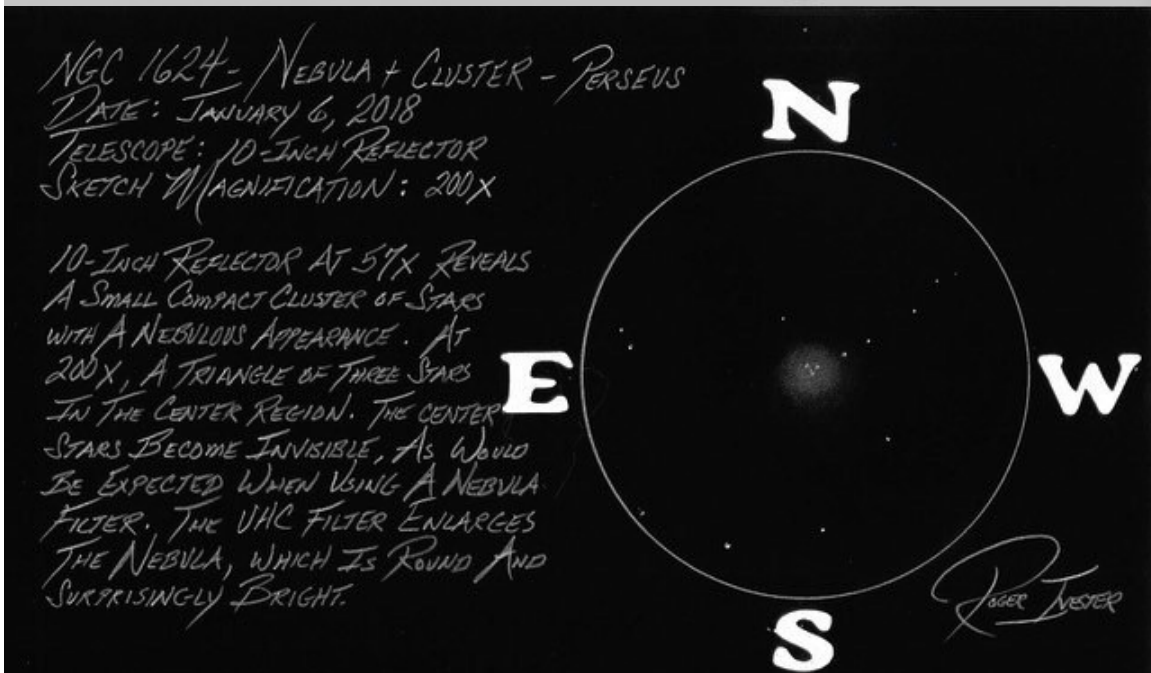 NGC 1624 - NEBULA + CLUSTER - PERSEUS
DATE: JANUARY 6, 2018
TELESCOPE: 10-INCH REFLECTOR
SKETCH MAGNIFICATION: 200X
10-INCH REFLECTOR AT 57X REVEALS
A SMALL COMPACT CLUSTER OF STARS
WITH A NEBULOUS APPEARANCE. AT
200X, A TRIANGLE OF THREE STARS
IN THE CENTER REGION. THE CENTER
STARS BECOME INVISIBLE, AS WOULD
BE EXPECTED WHEN USING A NEBULA
FILTER. THE UHC FILTER ENLARGES
THE NEBULA, WHICH IS ROUND AND
SURPRISINGLY BRIGHT.
N
E
W
S
ROGER IVESTER